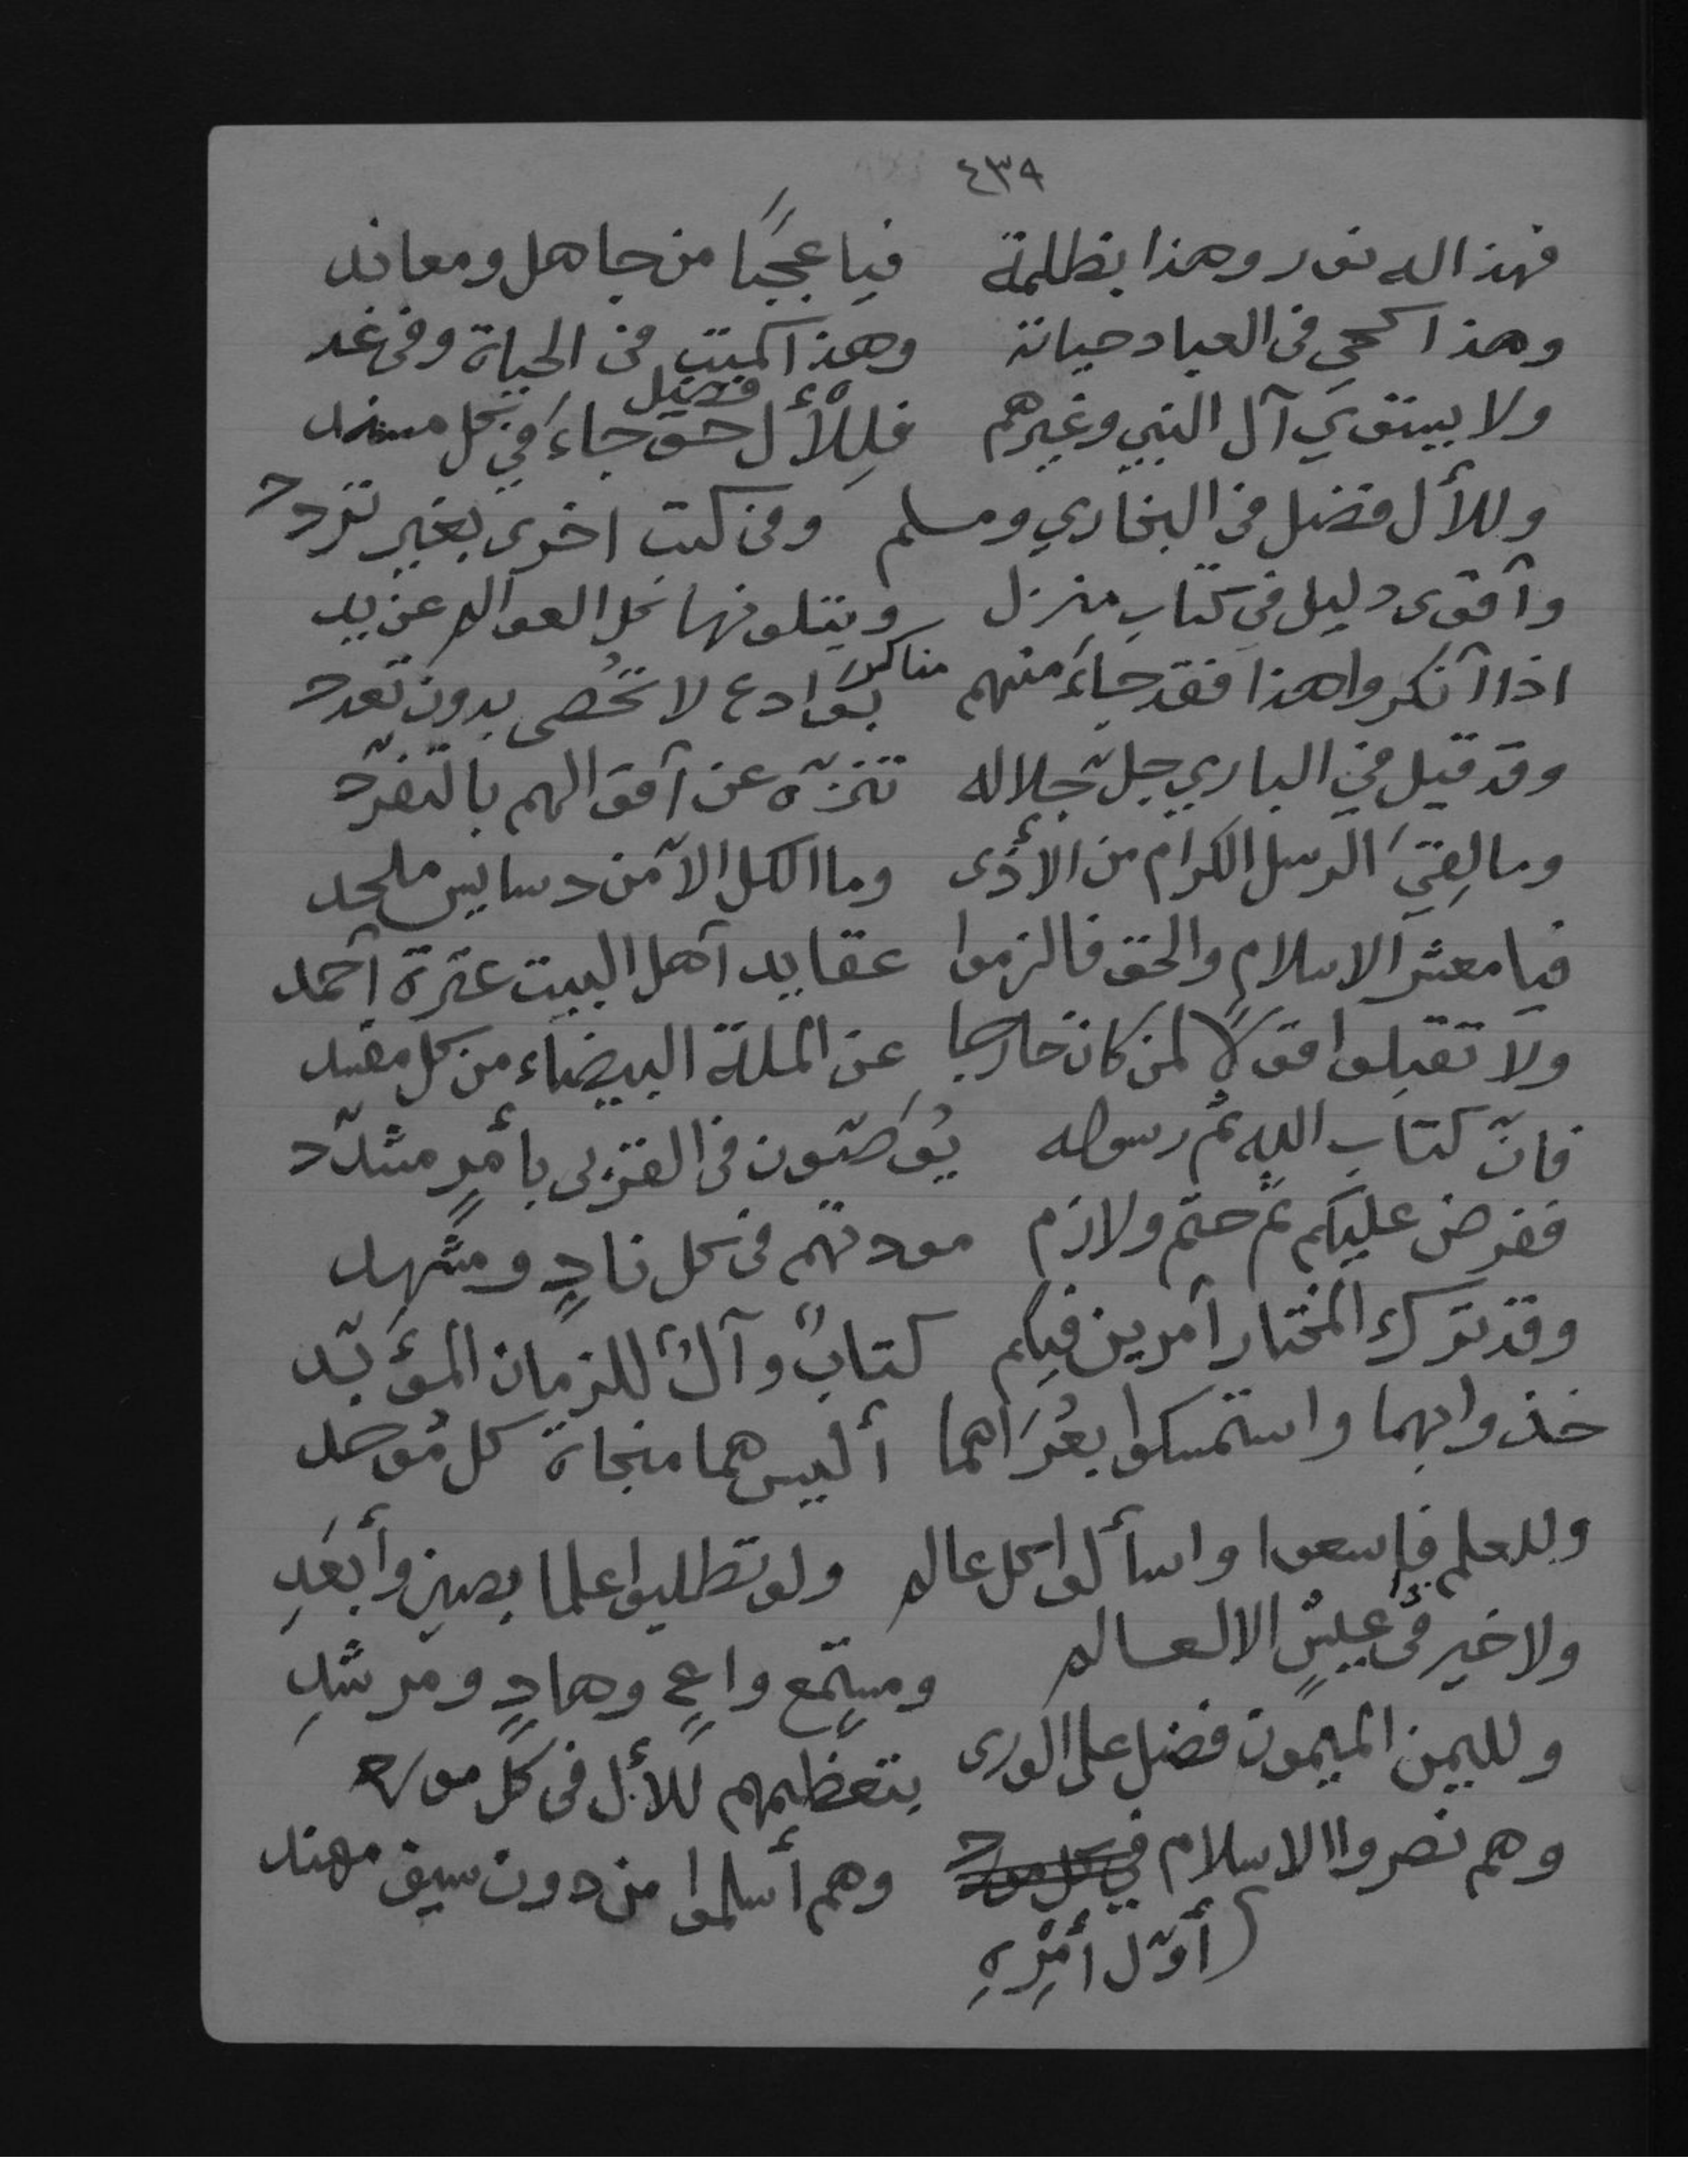 ٤٣٩
فهذا له نور وهذا بظلمة فيا عجبًا من جاهل ومعاند
وهذا كحي في العباد حياته وهذا كميت في الحياة وفي غد
ولا يستوي آل النبي وغيرهم فلِلأل حق فضيل جاءَ في كل مسند
وللأل فضل في البخاري ومسلم وفي كتب اخرى بغير تردد
وآقوى دليل في كتابٍ منزل ويتلونها كل العوالم عن يد
اذا آنكروا هذا فقد جاءَ منهم مناكر بوادع لا تُحصى بدون تعدد
وقد قيل في الباري جلّ جلاله تنزّه عن آقوالهم بالتفرّد
وما لِقيَ الرسل الكرام من الأذى وما الكل الا من دسايس ملحد
فيا معشر الاسلام والحق فالزموا عقايد آهل البيت عترة آحمد
ولا تقبلوا قولًا لمن كان خارجا عن الملة البيضاء من كل مفسد
فانّ كتاب الله ثم رسوله يُوَصّون في القربى بأمرٍ مشدّد
ففرض عليكم ثم حتم ولازم مودتهم في كل نادٍ ومشهد
وقد ترك المختار آمرين فيكم كتابٌ وآلٌ للزمان المؤبّد
خذوا بهما واستمسكوا بعُرَاهما أليس هما منجاة كل مُوحد
وللعلم فاسعوا واسألوا كل عالم ولو تطلبوا علما بصين وأبعَدِ
ولا خير في عيشٍ الا لعالم ومستمع واعٍ وهادٍ ومرشدِ
ولليمن الميمون فضل على الورى بتعظيمهم للأل في كل مورد
وهم نصروا الاسلام في كل مورد وهم أسلموا من دون سيف مهند
(أوّل أمْرِهِ